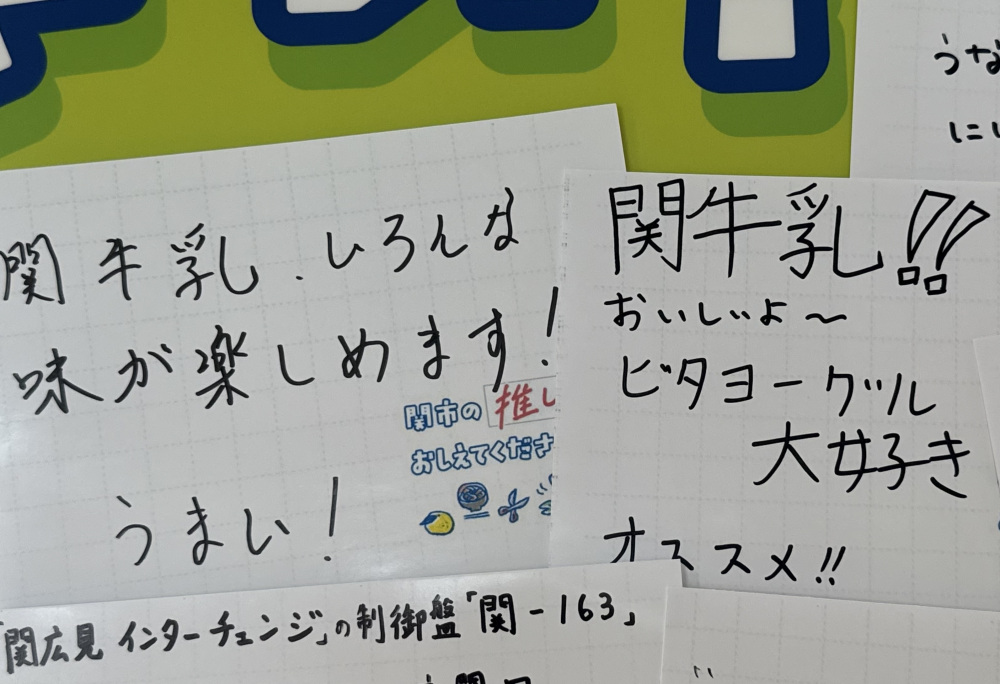 関牛乳.いろんな
味が楽しめます!
うまい!
関市の推し
おしえてくださ
関牛乳!!
おいしいよ~
ビタヨーグル
大好き
オススメ!!
うな
に
「関広見インターチェンジ」の制御盤「関-163」